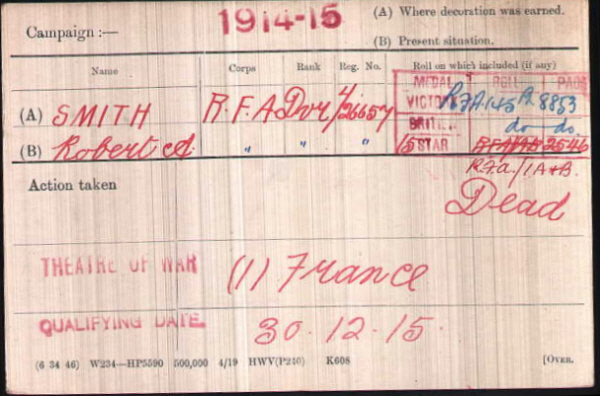 1914-15
(A) Where decoration was earned.
Campaign :—
(B) Present situation.
Name Corps Rank Reg. No. Roll on which included (if any)
MEDAL ROLL PAGE
(A) SMITH R.F.A Dvr 4/26657 VICTORY R.F.A 145A 8853
(B) Robert A " " " BRITISH do do
15 STAR 2546
R.F.A./1A&B.
Action taken Dead
THEATRE OF WAR (1) France
QUALIFYING DATE. 30.12.15.
(6 34 46) W234—HP5590 500,000 4/19 HWV(P240) K608 [OVER.